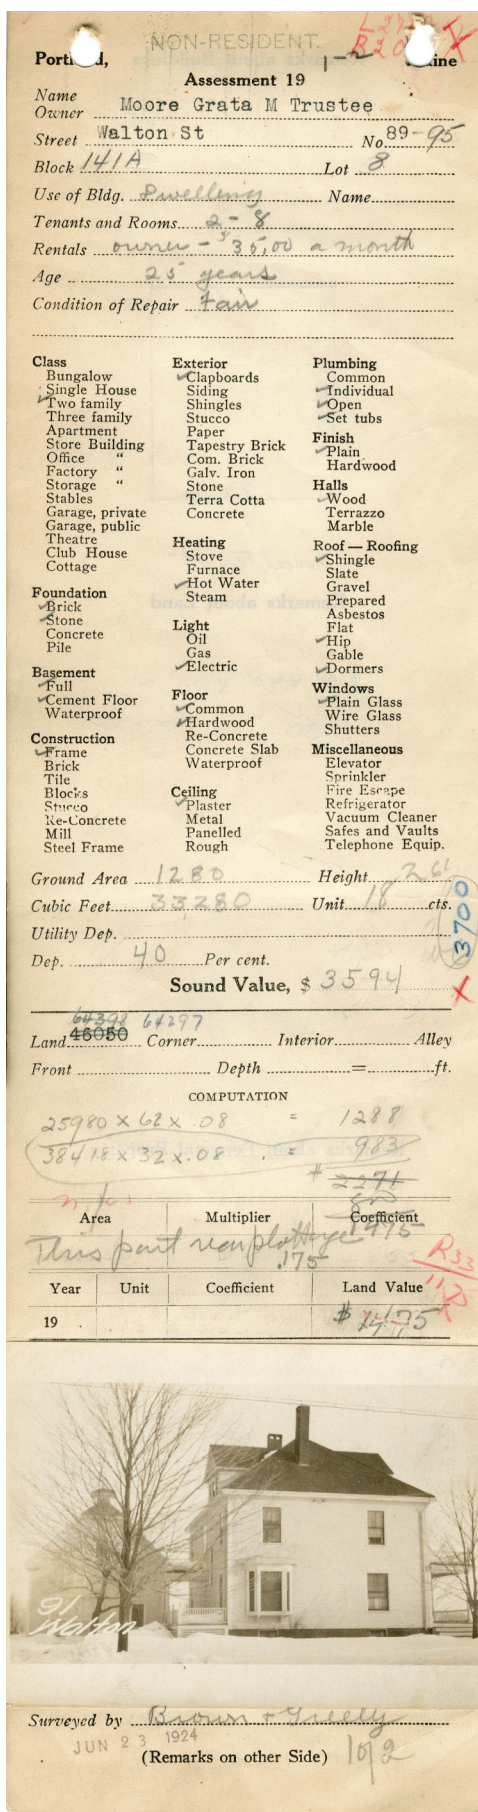 NON-RESIDENT.
1-2
Portland, Maine
Assessment 19
Name
Owner Moore Grata M Trustee
Street Walton St No. 89-95
Block 141A Lot 8
Use of Bldg. Dwelling Name
Tenants and Rooms 2-8
Rentals owner - $35.00 a month
Age 25 years
Condition of Repair Fair
Class
Bungalow
Single House
Two family
Three family
Apartment
Store Building
Office "
Factory "
Storage "
Stables
Garage, private
Garage, public
Theatre
Club House
Cottage
Foundation
Brick
Stone
Concrete
Pile
Basement
Full
Cement Floor
Waterproof
Construction
Frame
Brick
Tile
Blocks
Stucco
Re-Concrete
Mill
Steel Frame
Exterior
Clapboards
Siding
Shingles
Stucco
Paper
Tapestry Brick
Com. Brick
Galv. Iron
Stone
Terra Cotta
Concrete
Heating
Stove
Furnace
Hot Water
Steam
Light
Oil
Gas
Electric
Floor
Common
Hardwood
Re-Concrete
Concrete Slab
Waterproof
Ceiling
Plaster
Metal
Panelled
Rough
Plumbing
Common
Individual
Open
Set tubs
Finish
Plain
Hardwood
Halls
Wood
Terrazzo
Marble
Roof — Roofing
Shingle
Slate
Gravel
Prepared
Asbestos
Flat
Hip
Gable
Dormers
Windows
Plain Glass
Wire Glass
Shutters
Miscellaneous
Elevator
Sprinkler
Fire Escape
Refrigerator
Vacuum Cleaner
Safes and Vaults
Telephone Equip.
Ground Area 1280 Height 26'
Cubic Feet 33280 Unit 18 cts.
3700
Utility Dep.
Dep. 40 Per cent.
Sound Value, $ 3594
X
64398 64297
Land 46050 Corner Interior Alley
Front Depth = ft.
COMPUTATION
25980 x 62 x .08 = 1288
38418 x 32 x .08 = 983
$ 2271
Area Multiplier Coefficient
This part rear plottage 1475
.175
R33
Year Unit Coefficient Land Value
19 $ 1475
91
Walton
Surveyed by Brown & Greely
JUN 23 1924
(Remarks on other Side)